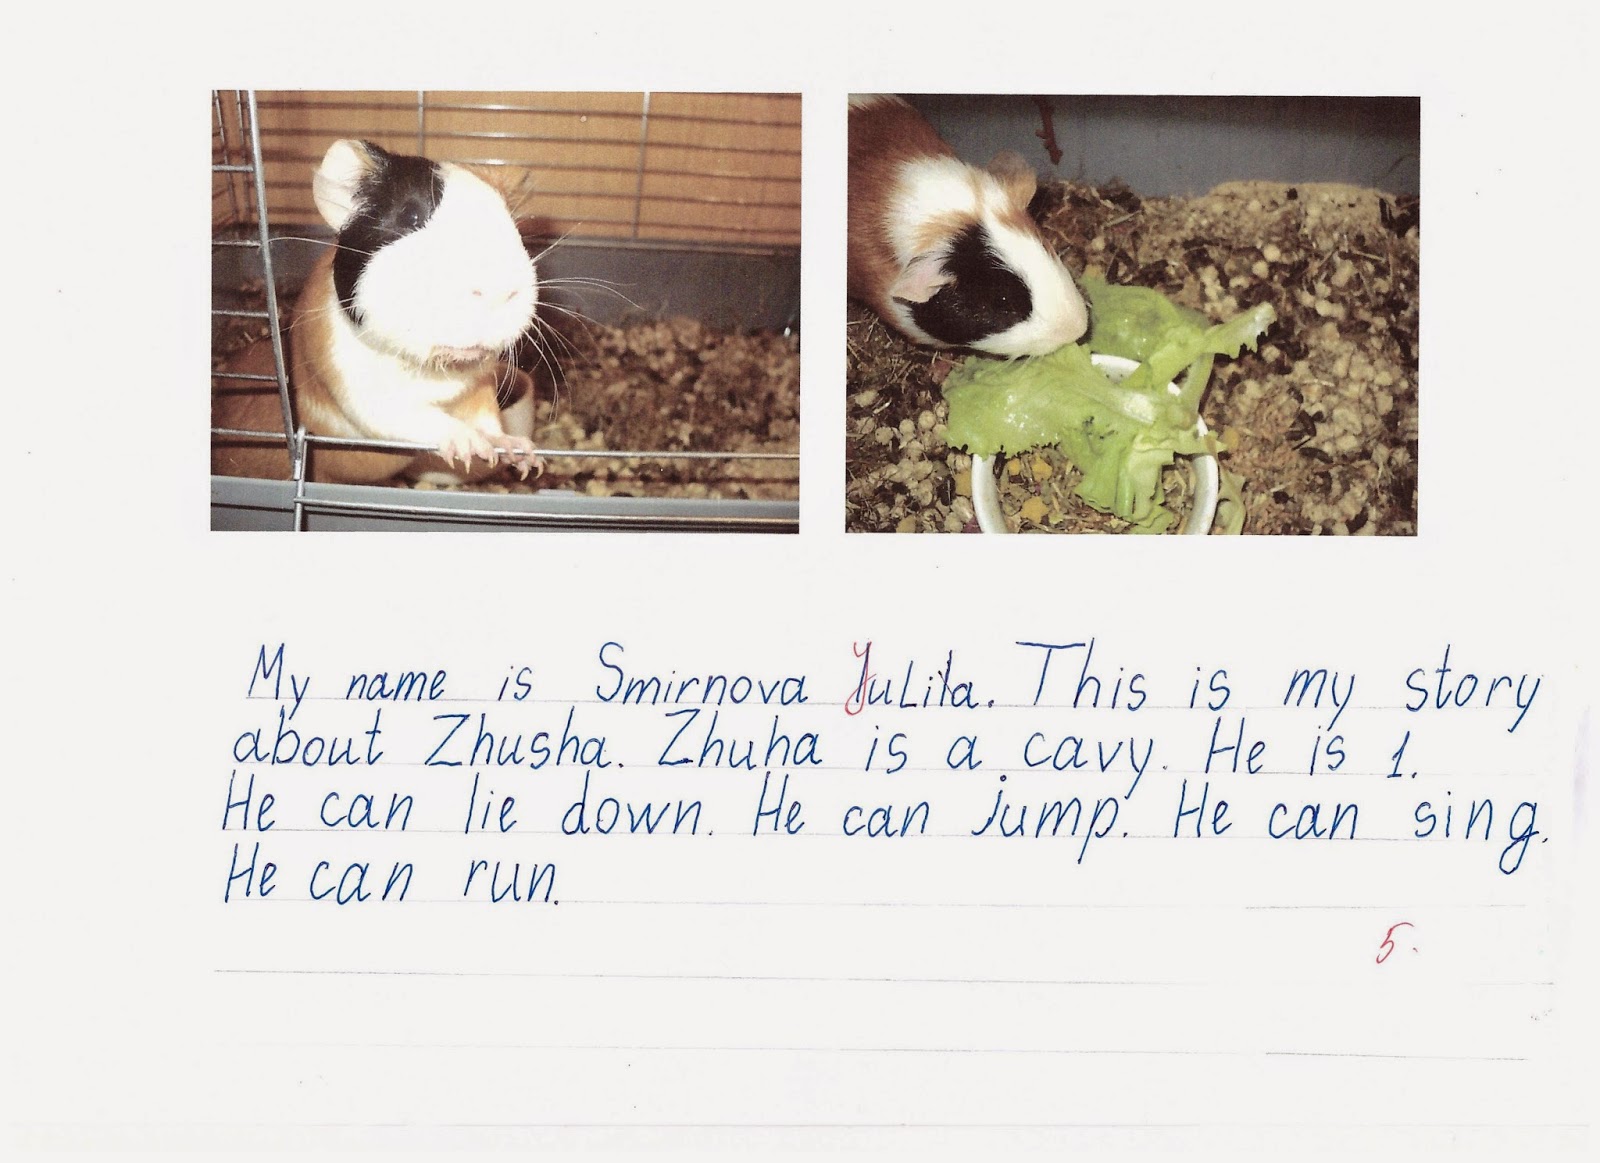 My name is Smirnova Julila. This is my story
about Zhusha. Zhuha is a cavy. He is 1.
He can lie down. He can jump. He can sing.
He can run.
5.